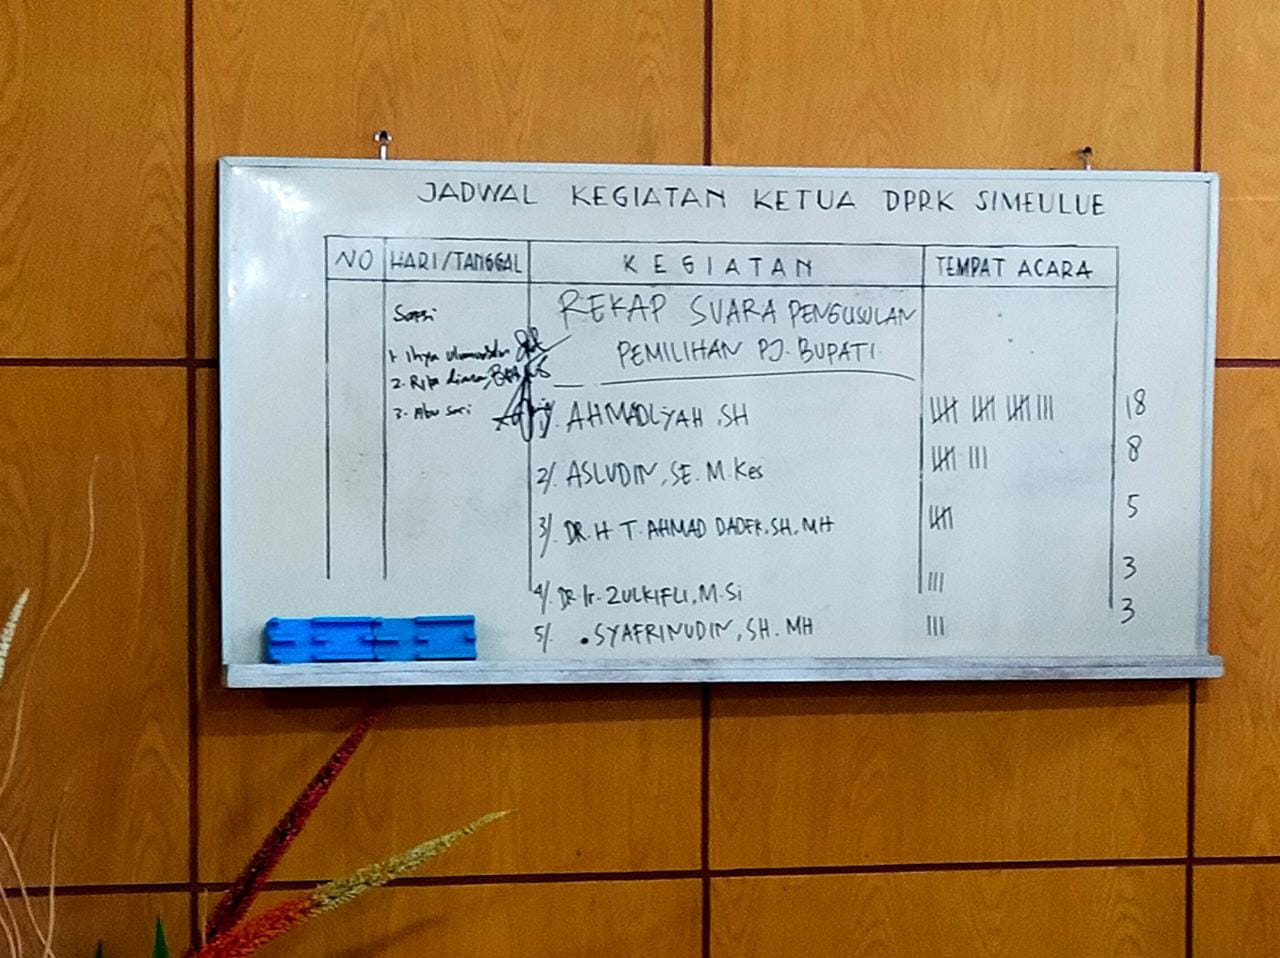 JADWAL KEGIATAN KETUA DPRK SIMEULUE
NO HARI/TANGGAL KEGIATAN TEMPAT ACARA
Saksi
1.
2.
3. Abu sari
REKAP SUARA PENGUSULAN
PEMILIHAN PJ. BUPATI
1/. AHMADLYAH, SH 18
2/. ASLUDIN, SE. M.Kes 8
3/. DR. H T. AHMAD DADEK, SH, MH 5
4/. DR. Ir. ZULKIFLI, M.Si 3
5/. SYAFRINUDIN, SH. MH 3